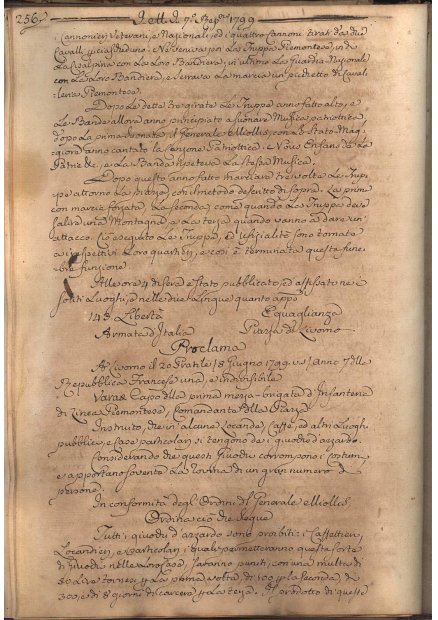 256
Cannonieri Veterani, e Nazionali, ed i quattro Cannoni tirati da due
Cavalli per ciascheduno. Ne veniva poi la Truppa Piemontese, indi
La Cisalpina con Le Loro Bandiere, in ultimo La Guardia Nazionale
con Le Loro Bandiera, e serrava La marcia un picchetto di Caval-
leria Piemontese.
Dopo Le dette tre girate Le Truppe anno fatto alto, e
Le Bande allora anno principiato a suonare Musica patriottica
dopo La prima suonata, il Generale Miollis, con Lo Stato Mag-
giore anno cantato La Canzone Patriottica. Alons Enfans de La
Patrie &c, e La Banda ripeteva La stessa Musica.
Dopo questo anno fatto marciare tre volte Le Trup-
pe attorno La piazza con il metodo descritto di sopra. La prima
con marcia forzata, La seconda, come quando La Truppa deve
salire una Montagna, e La terza quando vanno a dare un
attacco. Ciò eseguito Le Truppe, ed Uffizialità sono tornate
a i rispettivi Loro quartieri, e così è terminata questa fune-
bre funzione.
Alle ore 4 di sera è stato pubblicato, ed affissato ne i
soliti Luoghi, e nelle due Lingue quanto app.
Libertà Eguaglianza
Armata d'Italia Piazza di Livorno
Proclama
A Livorno il 20 Pratile 18 Giugno 1799 anno 7 della
Repubblica Francese una, e indivisibile
Capo della prima mezza-brigata d'Infanteria
di Linea Piemontese, Comandante della Piazza
Instruito, che in alcune Locande, Caffè, ed altri Luoghi
pubblici, e case particolari si tengono de i giuochi d'azzardo.
Considerando che questi Giuochi corrompono i costumi
e apportano sovente La rovina di un gran numero di
persone,
In conformità degl'Ordini del Generale Miollis
Ordina ciò che segue
Tutti i giuochi d'azzardo sono proibiti: i Caffettieri,
Locandieri, e particolari i quali permetteranno questa sorte
di Giuochi nelle Loro Case, saranno puniti, con una multa di
50 Lire tornesi per La prima volta, di 100 per La seconda, di
300, e di 8 giorni di carcere per La terza. Il prodotto di queste